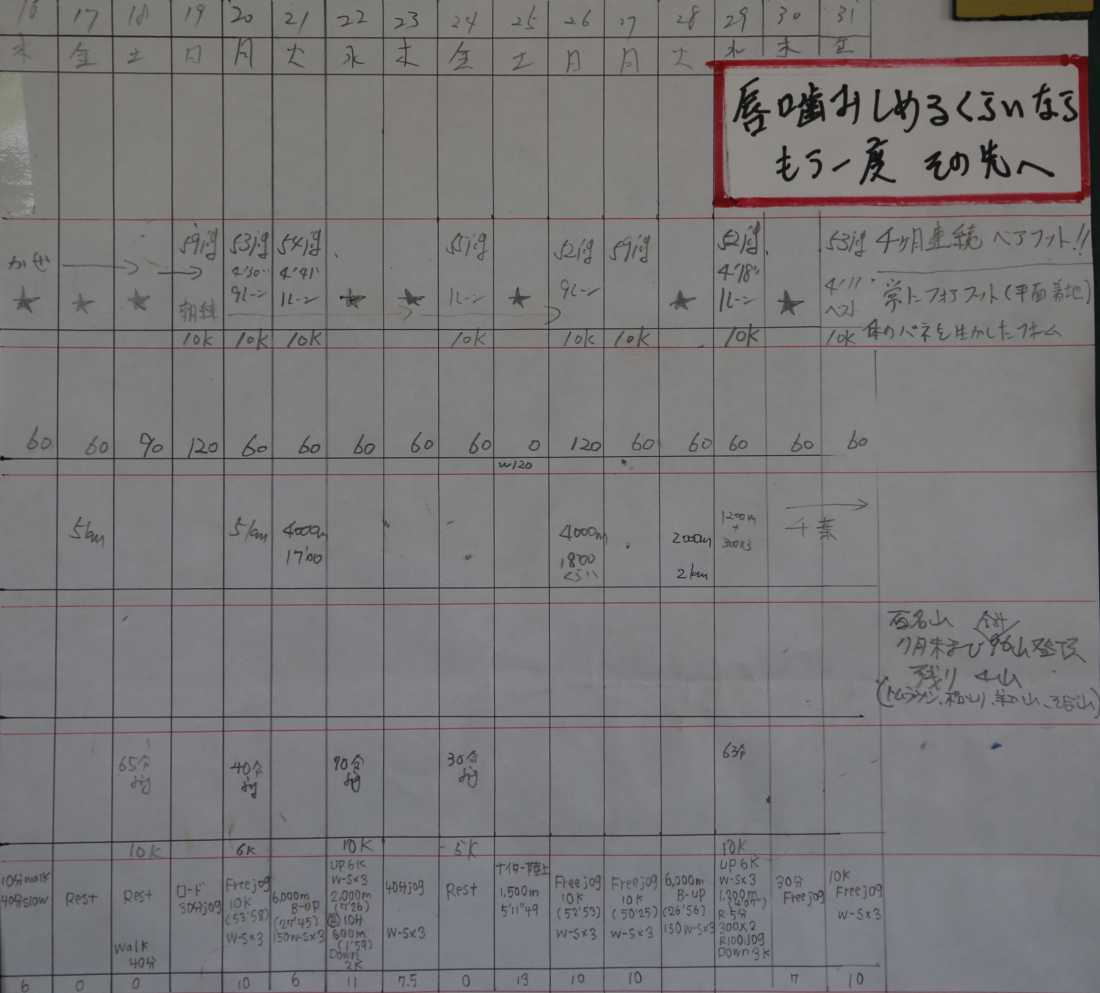 16 17 18 19 20 21 22 23 24 25 26 27 28 29 30 31
木 金 土 日 月 火 水 木 金 土 日 月 火 水 木 金
唇噛みしめるくらいなら
もう一度 その先へ
59jog 53jog 54jog 51jog 52jog 59jog 52jog 53jog 4ヶ月連続 ペアフット!!
かぜ 4'30" 4'41" 4'18" 4'11"
★ ★ ★ 朝練 9レーン 1レーン ★ ★ 1レーン ★ 9レーン ★ 1レーン ★ ベスト 常にフォアフット(平面着地)
10K 10K 10K 10K 10K 10K 10K 10K 体のバネを生かしたフォーム
60 60 90 120 60 60 60 60 60 0 120 60 60 60 60 60
W120
5km 5km 4000m 4000m 2000m 1200m
+
300×3 千葉
17'00 18'00
くらい 2km
百名山 合計
7月末まで96山登頂
残り 4山
65分
jog 40分
jog 90分
jog 30分
jog 63分
10K 6K 10K 5K 10K
10分walk
40分slow
Rest
Rest
Walk
40分
ロード
50分jog
Free jog
10K
(53'58)
W-S×3
6,000m
B-up
(27'45)
150W-S×3
UP6K
W-S×3
2,000m
(7'26)
600m
(1'59)
Down
2K
40分jog
W-S×3
Rest
ナイター陸上
1,500m
5'11"49
Free jog
10K
(52'53)
W-S×3
Free jog
10K
(50'25)
W-S×3
6,000m
B-up
(26'56)
150W-S×3
UP6K
W-S×3
R5分
300×2
R100jog
Down3K
30分
Free jog
10K
Free jog
W-S×3
6 0 0 10 6 11 7.5 0 13 10 10 7 10